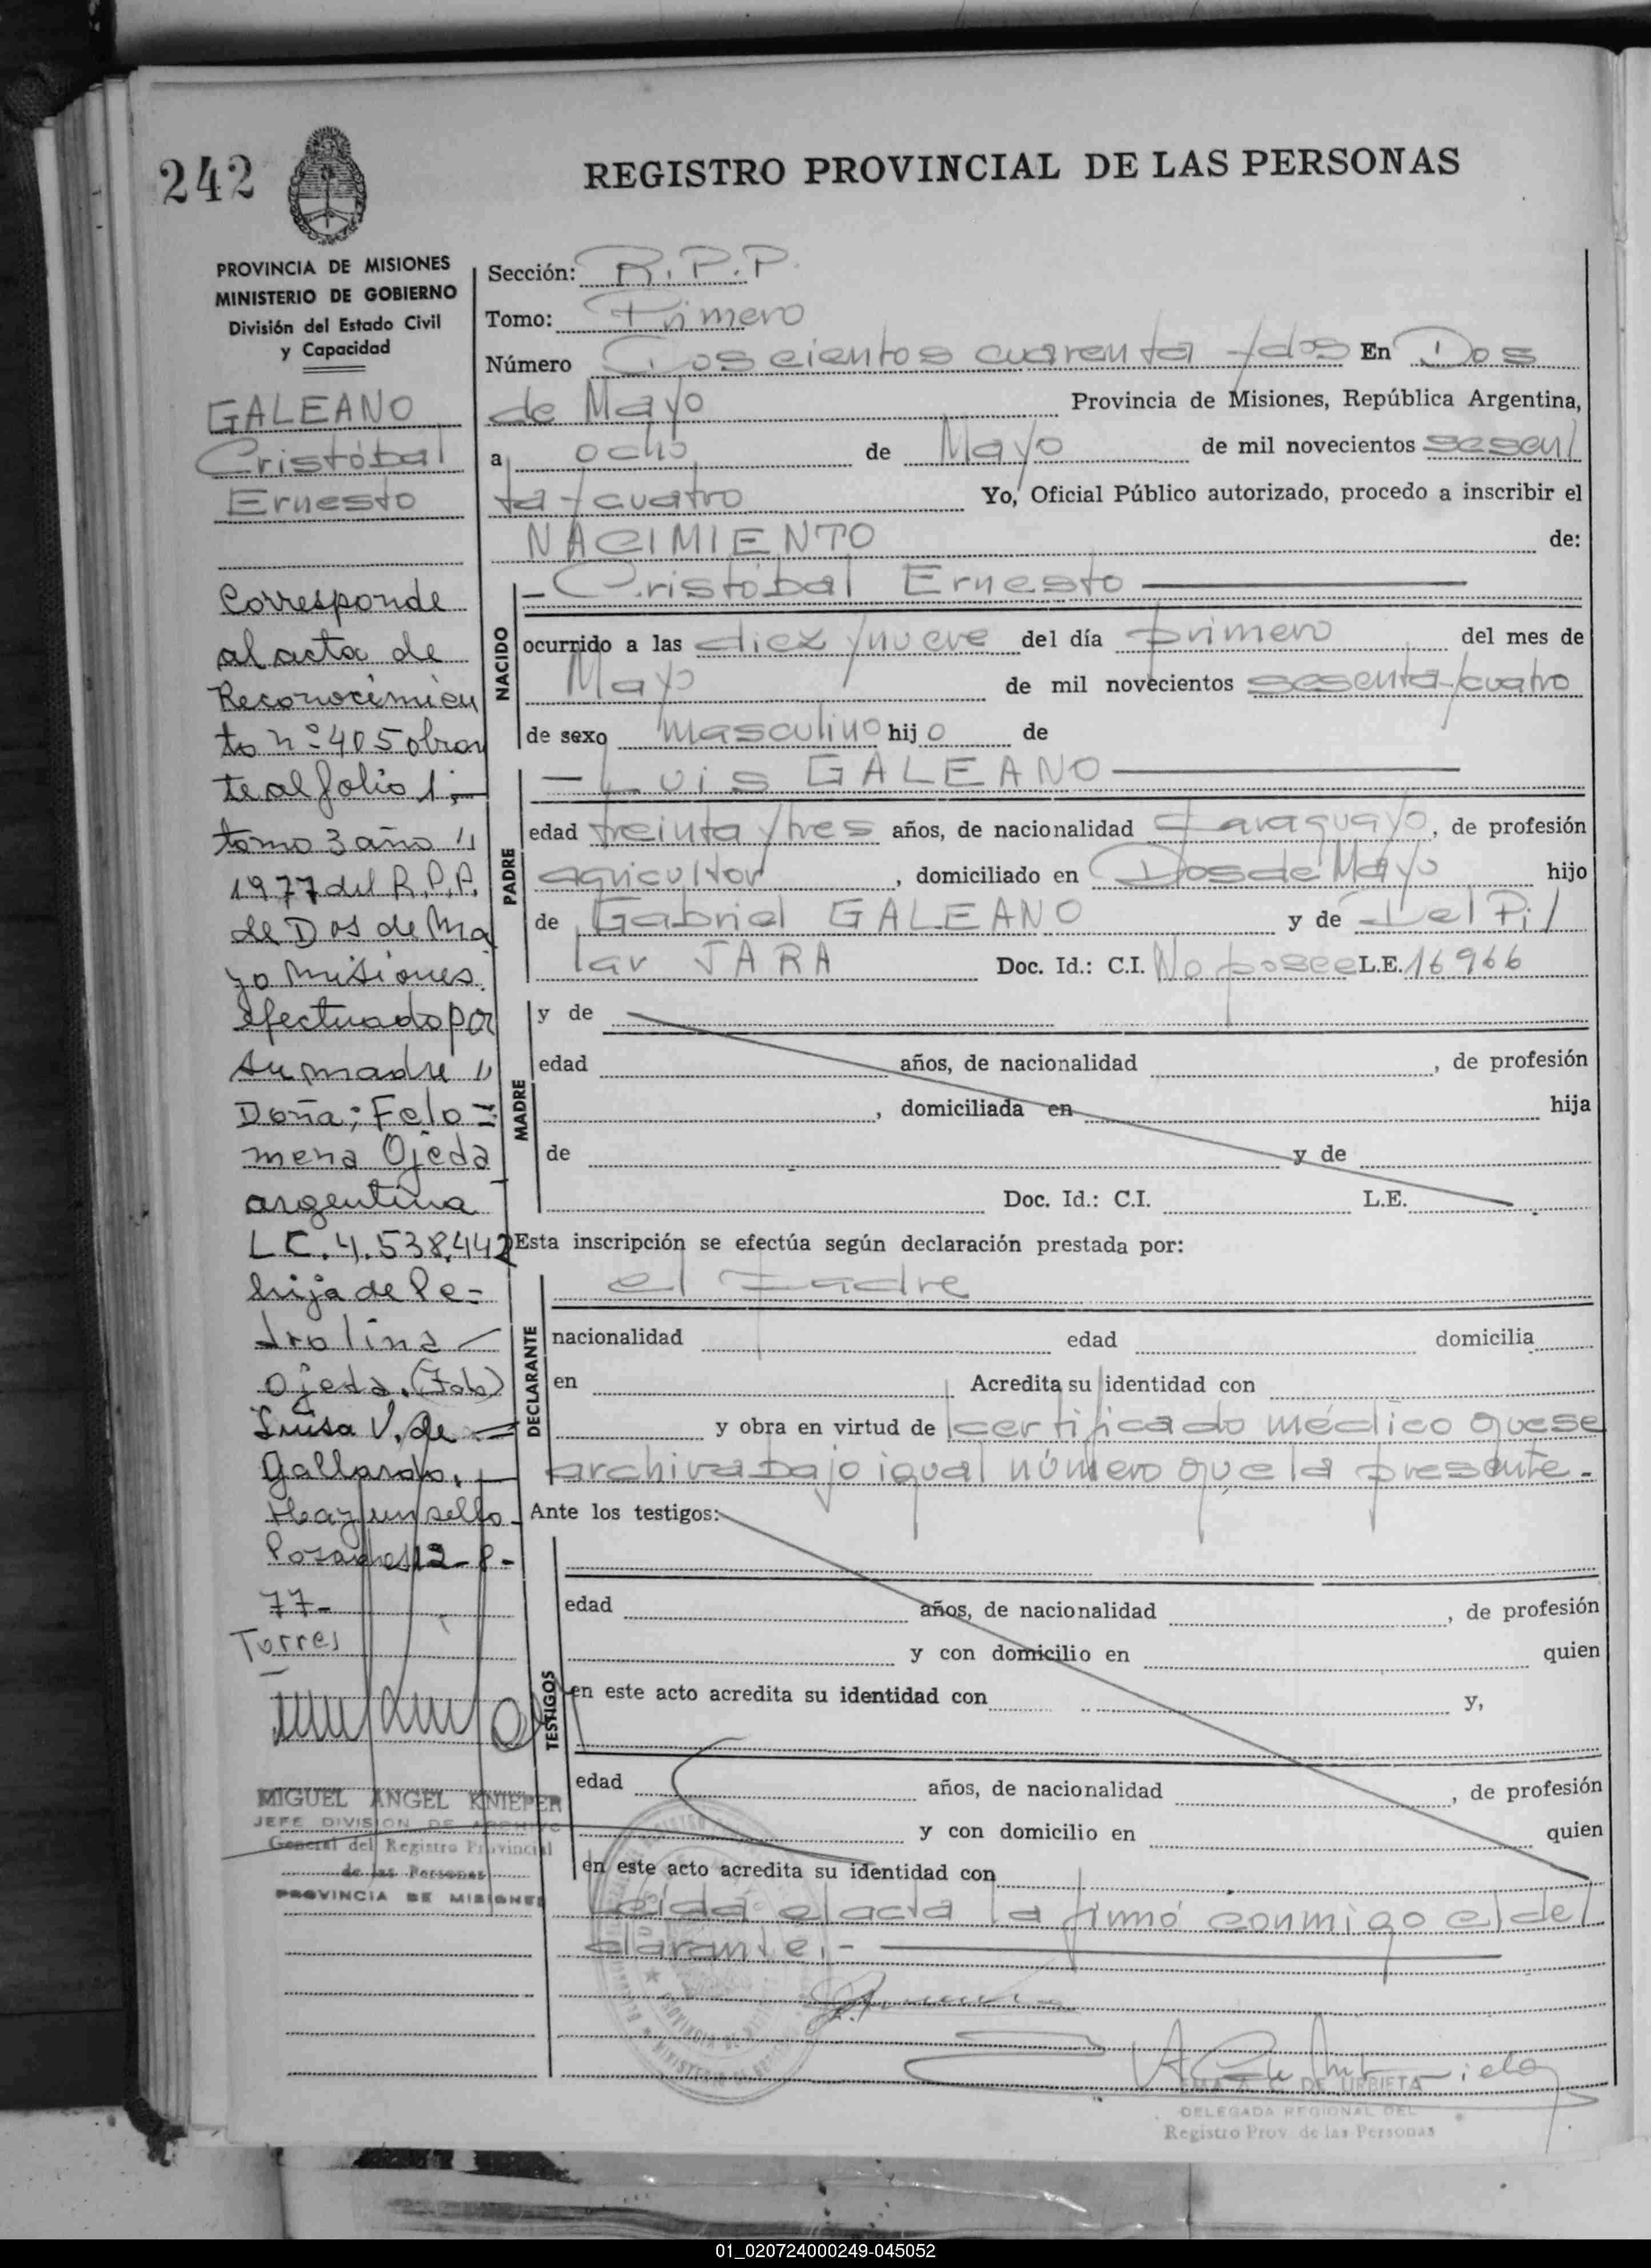 242
REGISTRO PROVINCIAL DE LAS PERSONAS
PROVINCIA DE MISIONES
MINISTERIO DE GOBIERNO
División del Estado Civil
y Capacidad
GALEANO
Cristóbal
Ernesto
Corresponde
al acta de
Reconocimien
to nº 405 obran
te al folio 1;
tomo 3 año "
1977 del R.P.P.
de Dos de Ma
yo Misiones.
efectuado por
su madre "
Doña; Felo=
mena Ojeda
argentina
L C. 4.538.442
hija de Pe-
drolina
Ojeda. (Fdo)
Luisa V. de =
Gallardo.
Hay un sello
Posadas 12-8-
77-
Torres
MIGUEL ANGEL KNIEPER
JEFE DIVISION DE ARCHIVO
General del Registro Provincial
de las Personas
PROVINCIA DE MISIONES
Sección: R.P.P.
Tomo: Primero
Número Doscientos cuarenta y dos En Dos
de Mayo Provincia de Misiones, República Argentina,
a ocho de Mayo de mil novecientos sesen/
ta y cuatro Yo, Oficial Público autorizado, procedo a inscribir el
NACIMIENTO de:
NACIDO
- Cristóbal Ernesto
ocurrido a las diez y nueve del día primero del mes de
Mayo de mil novecientos sesenta y cuatro
de sexo masculino hijo de
PADRE
- Luis GALEANO
edad treinta y tres años, de nacionalidad Paraguayo, de profesión
agricultor, domiciliado en Dos de Mayo hijo
de Gabriel GALEANO y de Del Pi/
lar JARA Doc. Id.: C.I. No posee L.E. 16966
MADRE
y de
edad años, de nacionalidad , de profesión
, domiciliada en hija
de y de
Doc. Id.: C.I. L.E.
Esta inscripción se efectúa según declaración prestada por:
DECLARANTE
el Padre
nacionalidad edad domicilia
en Acredita su identidad con
y obra en virtud de certificado médico que se
archiva bajo igual número que la presente.-
Ante los testigos:
TESTIGOS
edad años, de nacionalidad , de profesión
y con domicilio en quien
en este acto acredita su identidad con y,
edad años, de nacionalidad , de profesión
y con domicilio en quien
en este acto acredita su identidad con
Leída el acta la firmó conmigo el de/
clarante.-
DE URRIETA
DELEGADA REGIONAL DEL
Registro Prov. de las Personas
01_020724000249-045052